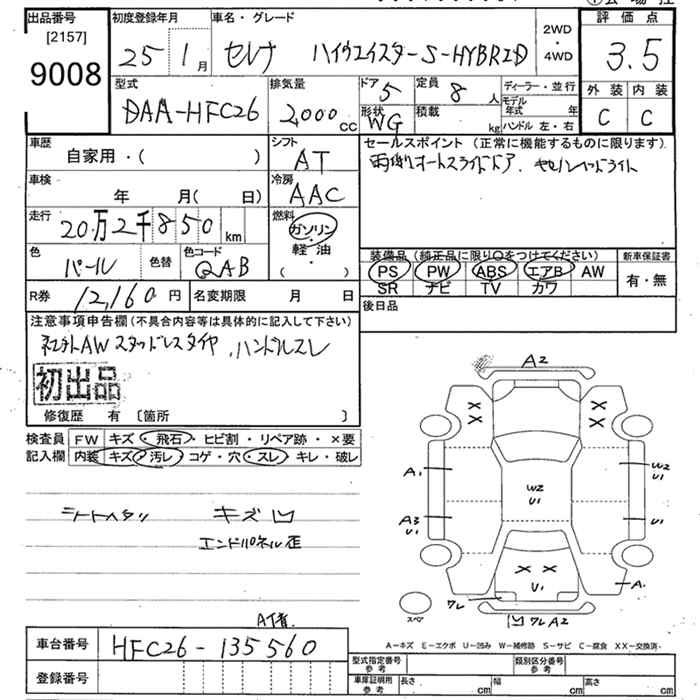 出品番号
[2157]
9008
初度登録年月
25 1月
車名・グレード
セレナ ハイウェイスターS-HYBRID
2WD
・
4WD
評価点
3.5
外装 内装
C C
型式
DAA-HFC26
排気量
2,000 CC
ドア 5
定員 8 人
形状 WG
積載 kg
ディーラー・並行
モデル年式 年
ハンドル 左・右
車歴
自家用・( )
シフト
AT
車検
年 月( 日)
冷房
AAC
走行
20万2千850 km
燃料
ガソリン
・
軽・油
・
( )
色
パール
色替
色コード
QAB
R券 12,160円
名変期限 月 日
セールスポイント (正常に機能するものに限ります).
両側オートスライドドア.
装備品 (純正品に限り○をつけてください)
PS PW ABS エアB AW
SR ナビ TV カワ
新車保証書
有・無
後日品
注意事項申告欄 (不具合内容等は具体的に記入して下さい)
社外AW スタッドレスタイヤ、ハンドルスレ
初出品
修復歴 有 〔箇所 〕
検査員
記入欄
FW キズ・飛石・ヒビ割・リペア跡・×要
内装 キズ・汚レ・コゲ・穴・スレ・キレ・破レ
シートヘタリ キズ凹
エンドパネル歪
A2
A1
W2
U1
A3
W2
U1
U1
U1
A1
ワレ
スペア
凹ワレA2
A-キズ E-エクボ U-凹み W-補修跡 S-サビ C-腐食 XX-交換済.
車台番号 HFC26-135560
登録番号
型式指定番号
参考
類別区分番号
参考
車庫証明用
参考
長さ cm 幅 cm 高さ cm